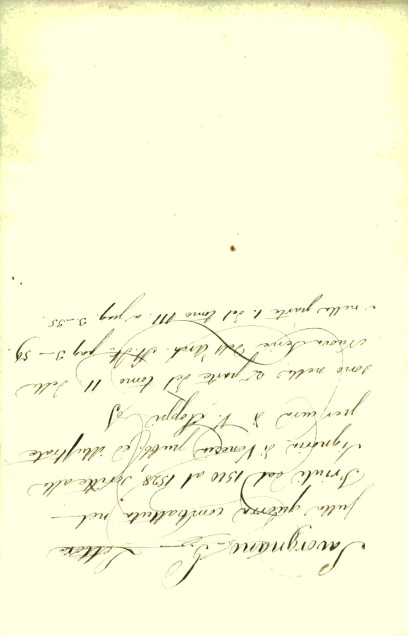 Savorgnano Gio — Lettere
sulla guerra combattuta nel
Friuli dal 1510 al 1528, scritte alla
Signoria di Venezia pubb. ed illustrate
per cura di V. Joppi
sono nella 2ª parte del tomo II della
Nuova Serie dell'Arch. St. It. pag 3—59
e nella parte 1. del tomo III. a pag. 3—35.